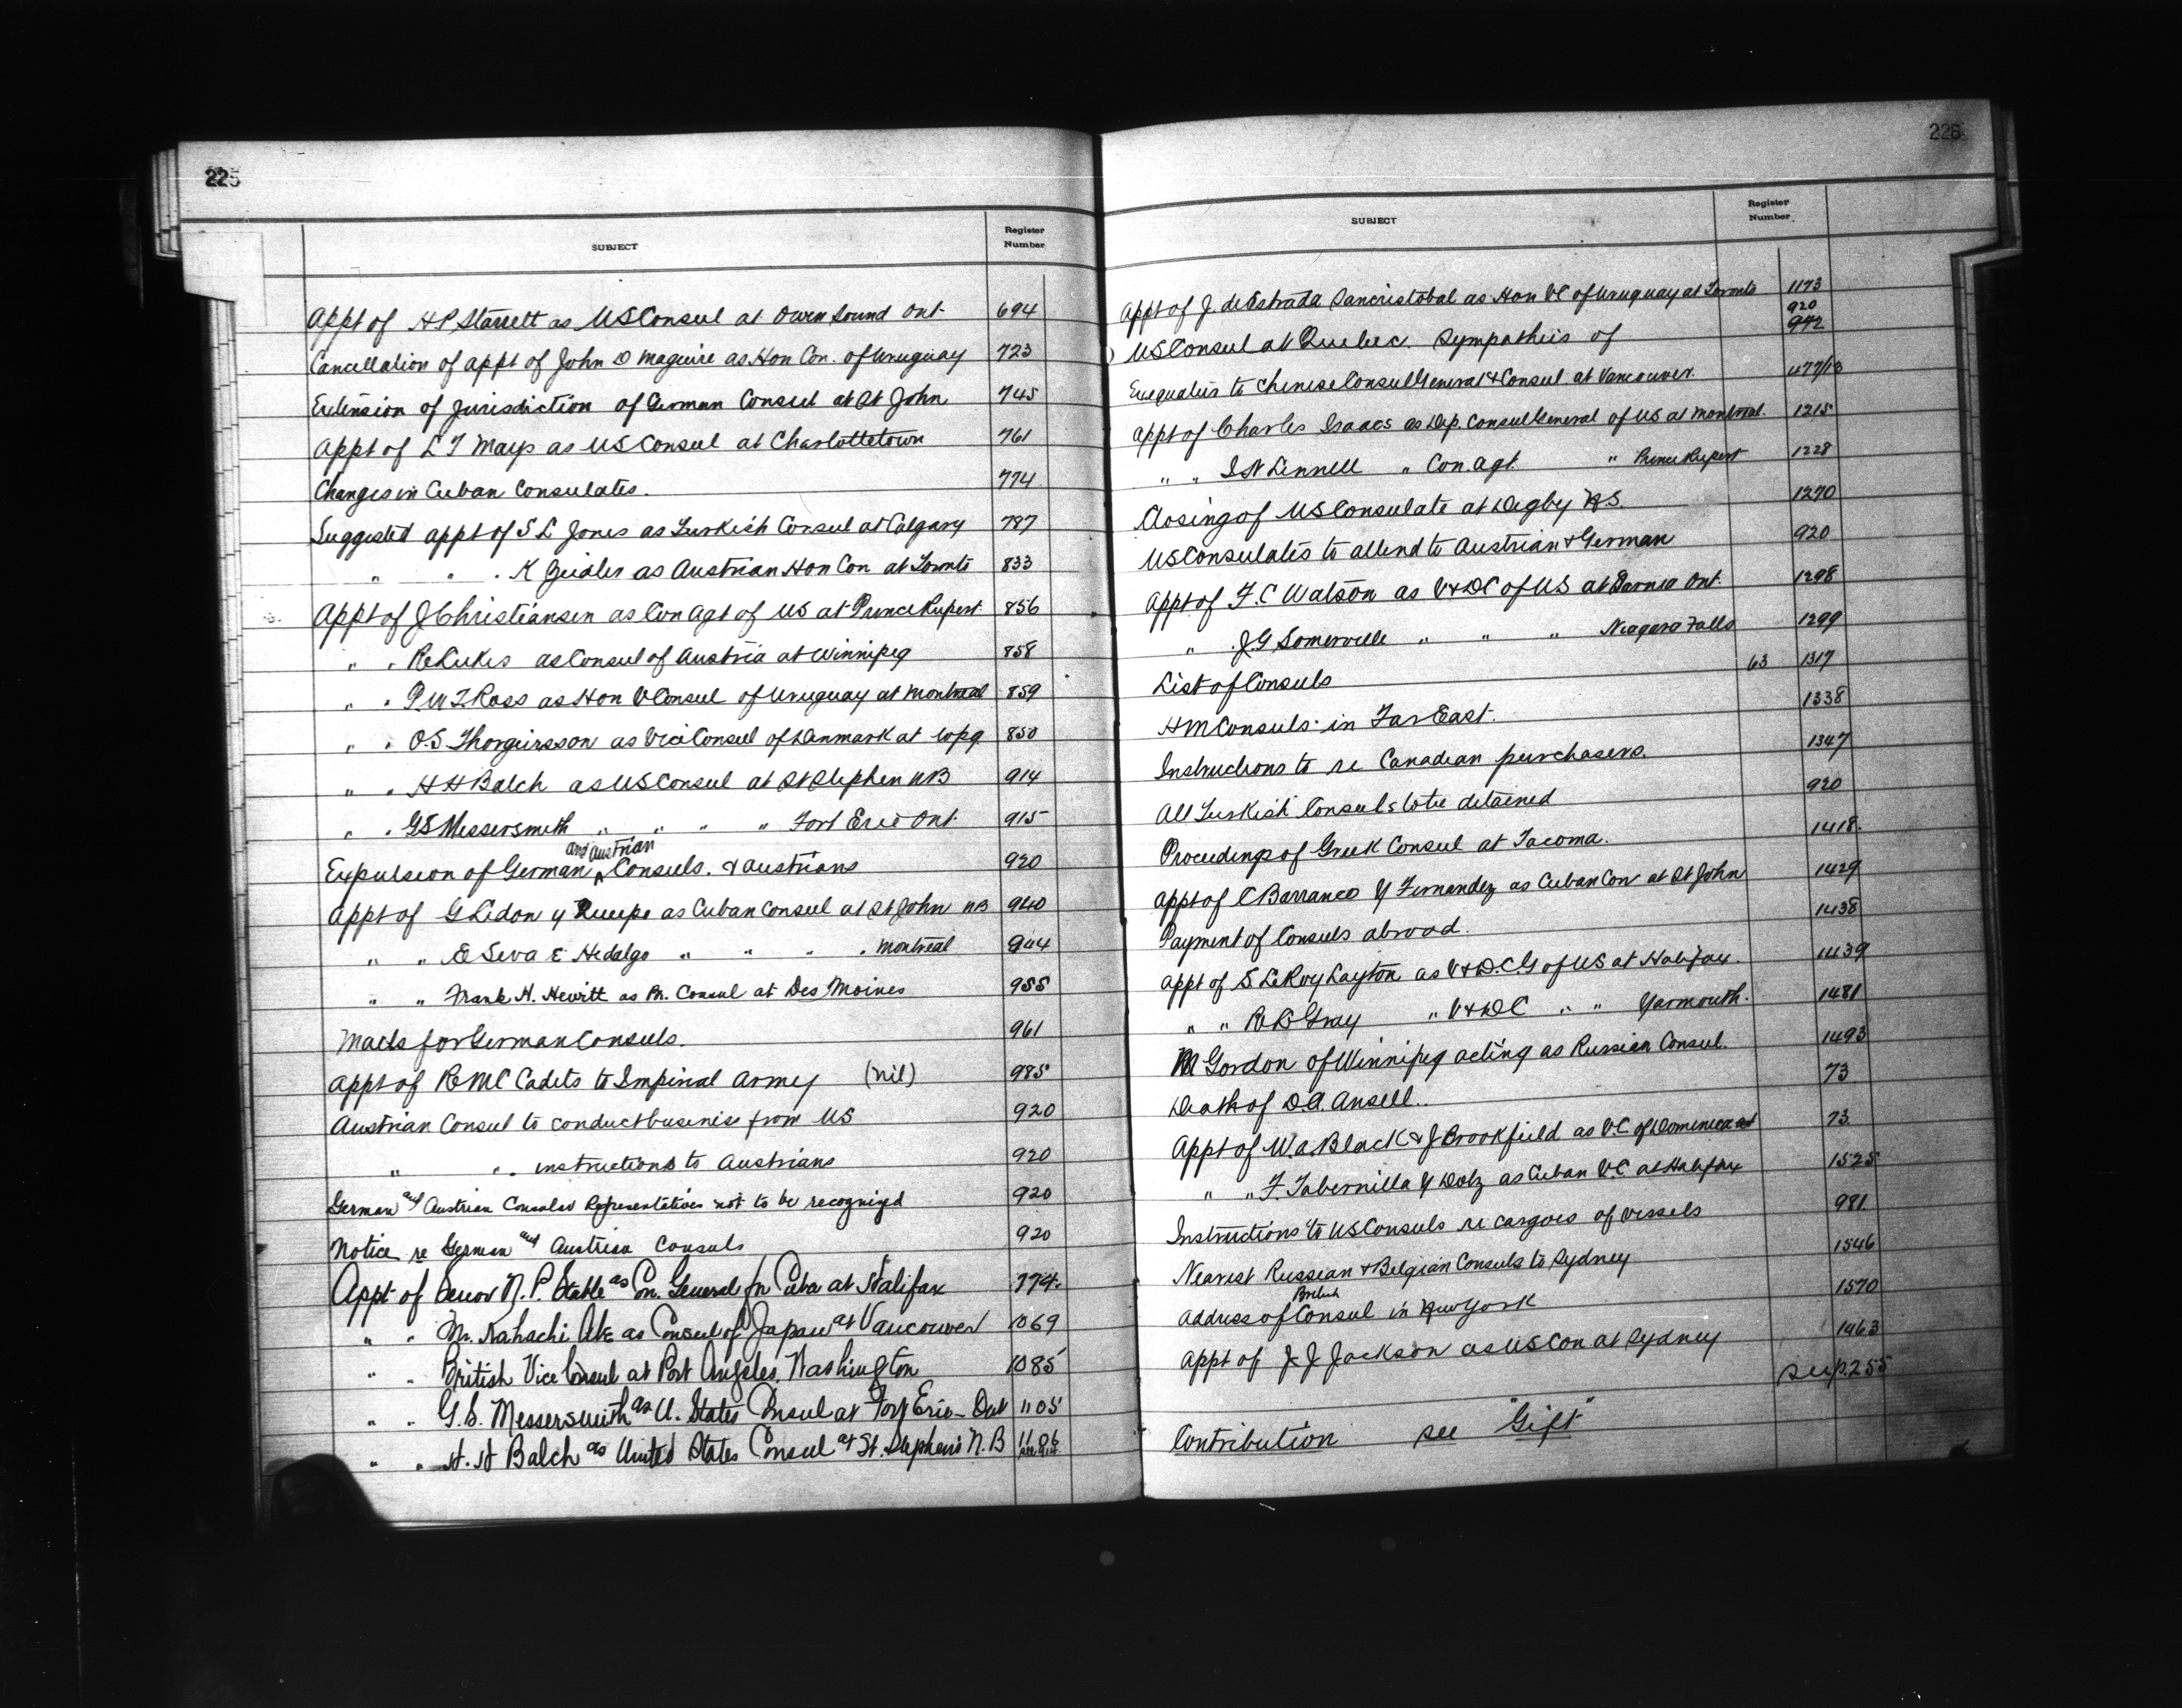 225
SUBJECT Register Number
Appt of H P Starrett as US Consul at Owen Sound Ont. 694
Cancellation of appt of John D Maguire as Hon Con. of Uruguay 723
Extension of jurisdiction of German Consul at St John 745
Appt of L T Mays as US Consul at Charlottetown 761
Changes in Cuban Consulates. 774
Suggested appt of S L Jones as Turkish Consul at Calgary 787
" " " K Zeidler as Austrian Hon Con at Toronto 833
Appt of J Christiansen as Con Agt of US at Prince Rupert 856
" " as Consul of Austria at Winnipeg 858
" " P W T Ross as Hon V Consul of Uruguay at Montreal 859
" " O.S. Thorgeirsson as Vice Consul of Denmark at Wpg 850
" " H H Balch as US Consul at St Stephen NB 914
" " G S Messersmith " " " " Fort Erie Ont. 915
and Austrian
Expulsion of German ^ Consuls. & Austrians 920
Appt of G Lidon y as Cuban Consul at St John NB 940
" " E Seva E Hidalgo " " " " Montreal 944
" " Frank H. Hewitt as Br. Consul at Des Moines 955
Mails for German Consuls. 961
Appt of RMC Cadets to Imperial Army (nil) 985
Austrian Consul to conduct business from US 920
" " . instructions to Austrians 920
German and Austrian Consular Representatives not to be recognized 920
Notice re German and Austrian Consuls 920
Appt of Senor N. P. Stable as Con. General for Cuba at Halifax 774.
" " Mr. Abe as Consul of Japan at Vancouver 1069
" " British Vice Consul at Port Angeles, Washington 1085
" " G. S. Messersmith as U. States Consul at Fort Erie - Ont 1105
" " H. H Balch as United States Consul at St. Stephens N. B 1106
226
SUBJECT Register Number
Appt of J. de Estrada Sancristobal as Hon VC of Uruguay at Toronto 1173
920
US Consul at Quebec. Sympathies of 942
Exequaties to Chinese Consul General & Consul at Vancouver. 477/13
Appt of Charles Isaacs as Dep. Consul General of US at Montreal. 1215
" " I N Linnell " Con. Agt. " Prince Rupert 1228
Closing of US Consulate at Digby N.S. 1270
US Consulates to attend to Austrian & German 920
Appt of F. C Watson as V & DC of US at Sarnia Ont. 1298
" . J. G Somerville " " " Niagara Falls 1299
List of Consuls 63 1317
HM Consuls in Far East. 1338
Instructions to re Canadian purchasers. 1347
All Turkish Consuls to be detained 920
Proceedings of Greek Consul at Tacoma. 1418.
Appt of C Barranco Y Fernandez as Cuban Con at St John 1429
Payment of Consuls abroad. 1438
Appt of S LeRoy Layton as V & D.C.G of US at Halifax. 1439
" " Gray " V & DC " " Yarmouth. 1481
M Gordon of Winnipeg acting as Russian Consul. 1493
Death of D.A. Ansell.. 73
Appt of W. A. Black & J Brookfield as V.C. of Dominica at 73
" " F. Tabernilla Y Dolz as Cuban V.C. at Halifax 1525
Instructions to US Consuls re cargoes of vessels 981
Nearest Russian & Belgian Consuls to Sydney 1546
British
Address of Consul in New York 1570
Appt of J. J. Jackson as US Con at Sydney 1463
see p. 255
Contribution see "Gift"